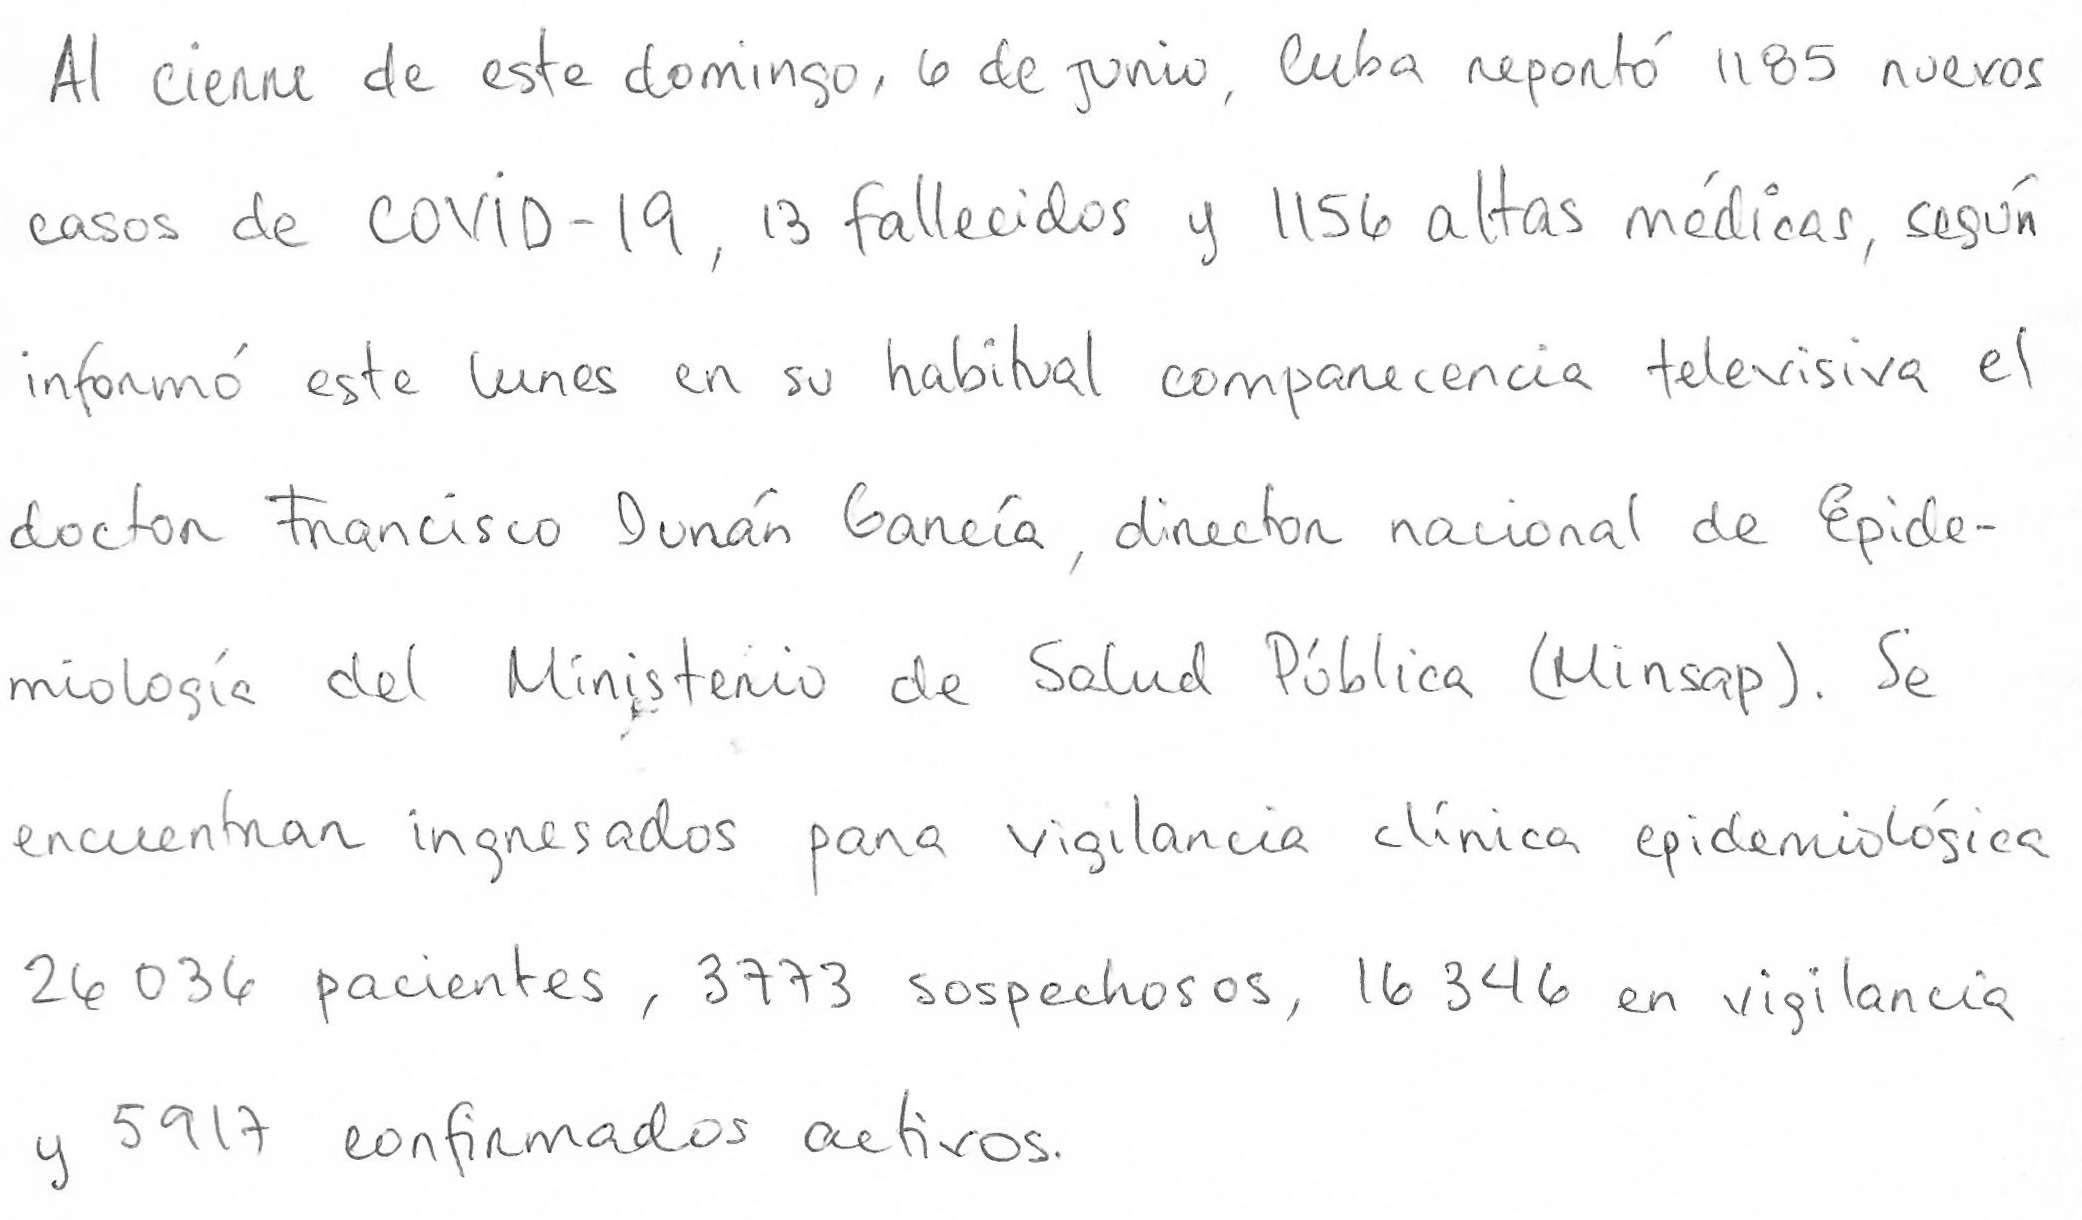 Al cierre de este domingo, 6 de junio, Cuba reportó 1185 nuevos
casos de COVID-19, 13 fallecidos y 1156 altas médicas, según
informó este lunes en su habitual comparecencia televisiva el
doctor Francisco Durán García, director nacional de Epide-
miología del Ministerio de Salud Pública (Minsap). Se
encuentran ingresados para vigilancia clínica epidemiológica
26 036 pacientes, 3773 sospechosos, 16 346 en vigilancia
y 5917 confirmados activos.